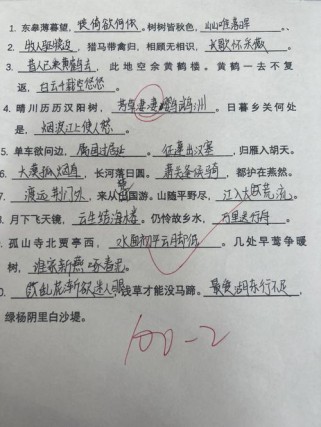 1. 东皋薄暮望,徙倚欲何依。树树皆秋色,山山唯落晖、
2. 牧人驱犊返,猎马带禽归。相顾无相识,长歌怀采薇。
3. 昔人已乘黄鹤去,此地空余黄鹤楼。黄鹤一去不复
返,白云千载空悠悠。
4. 晴川历历汉阳树,芳草萋萋鹦鹉洲。日暮乡关何处
是,烟波江上使人愁。
5. 单车欲问边,属国过居延。征蓬出汉塞,归雁入胡天。
6. 大漠孤烟直,长河落日圆。萧关逢候骑,都护在燕然。
7. 渡远荆门外,来从楚国游。山随平野尽,江入大荒流。
月下飞天镜,云生结海楼。仍怜故乡水,万里送行舟。
孤山寺北贾亭西,水面初平云脚低。几处早莺争暖
树,谁家新燕啄春泥。
乱花渐欲迷人眼,浅草才能没马蹄。最爱湖东行不足,
绿杨阴里白沙堤。
100-2